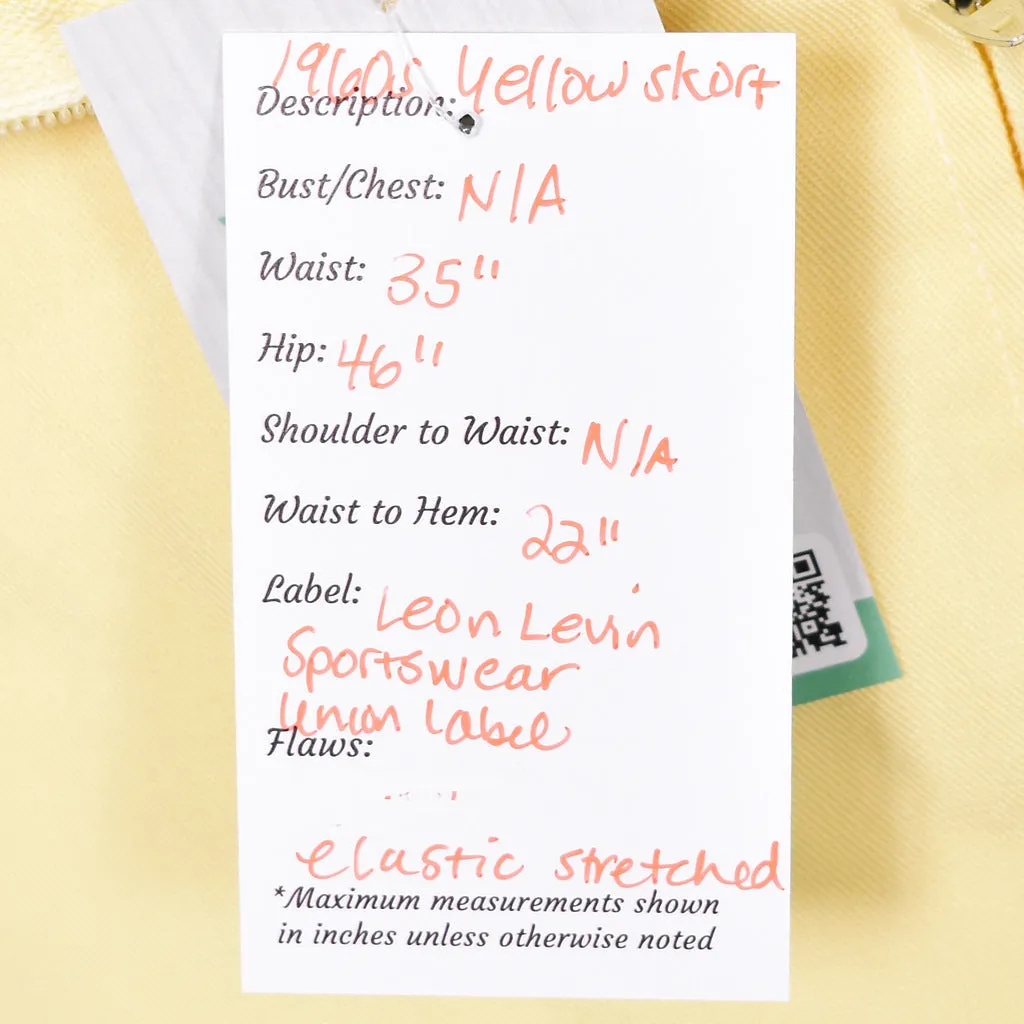 Description: 1960s Yellow skort
Bust/Chest: N/A
Waist: 35"
Hip: 46"
Shoulder to Waist: N/A
Waist to Hem: 22"
Label: Leon Levin
Sportswear
Union Label
Flaws:
elastic stretched
*Maximum measurements shown
in inches unless otherwise noted